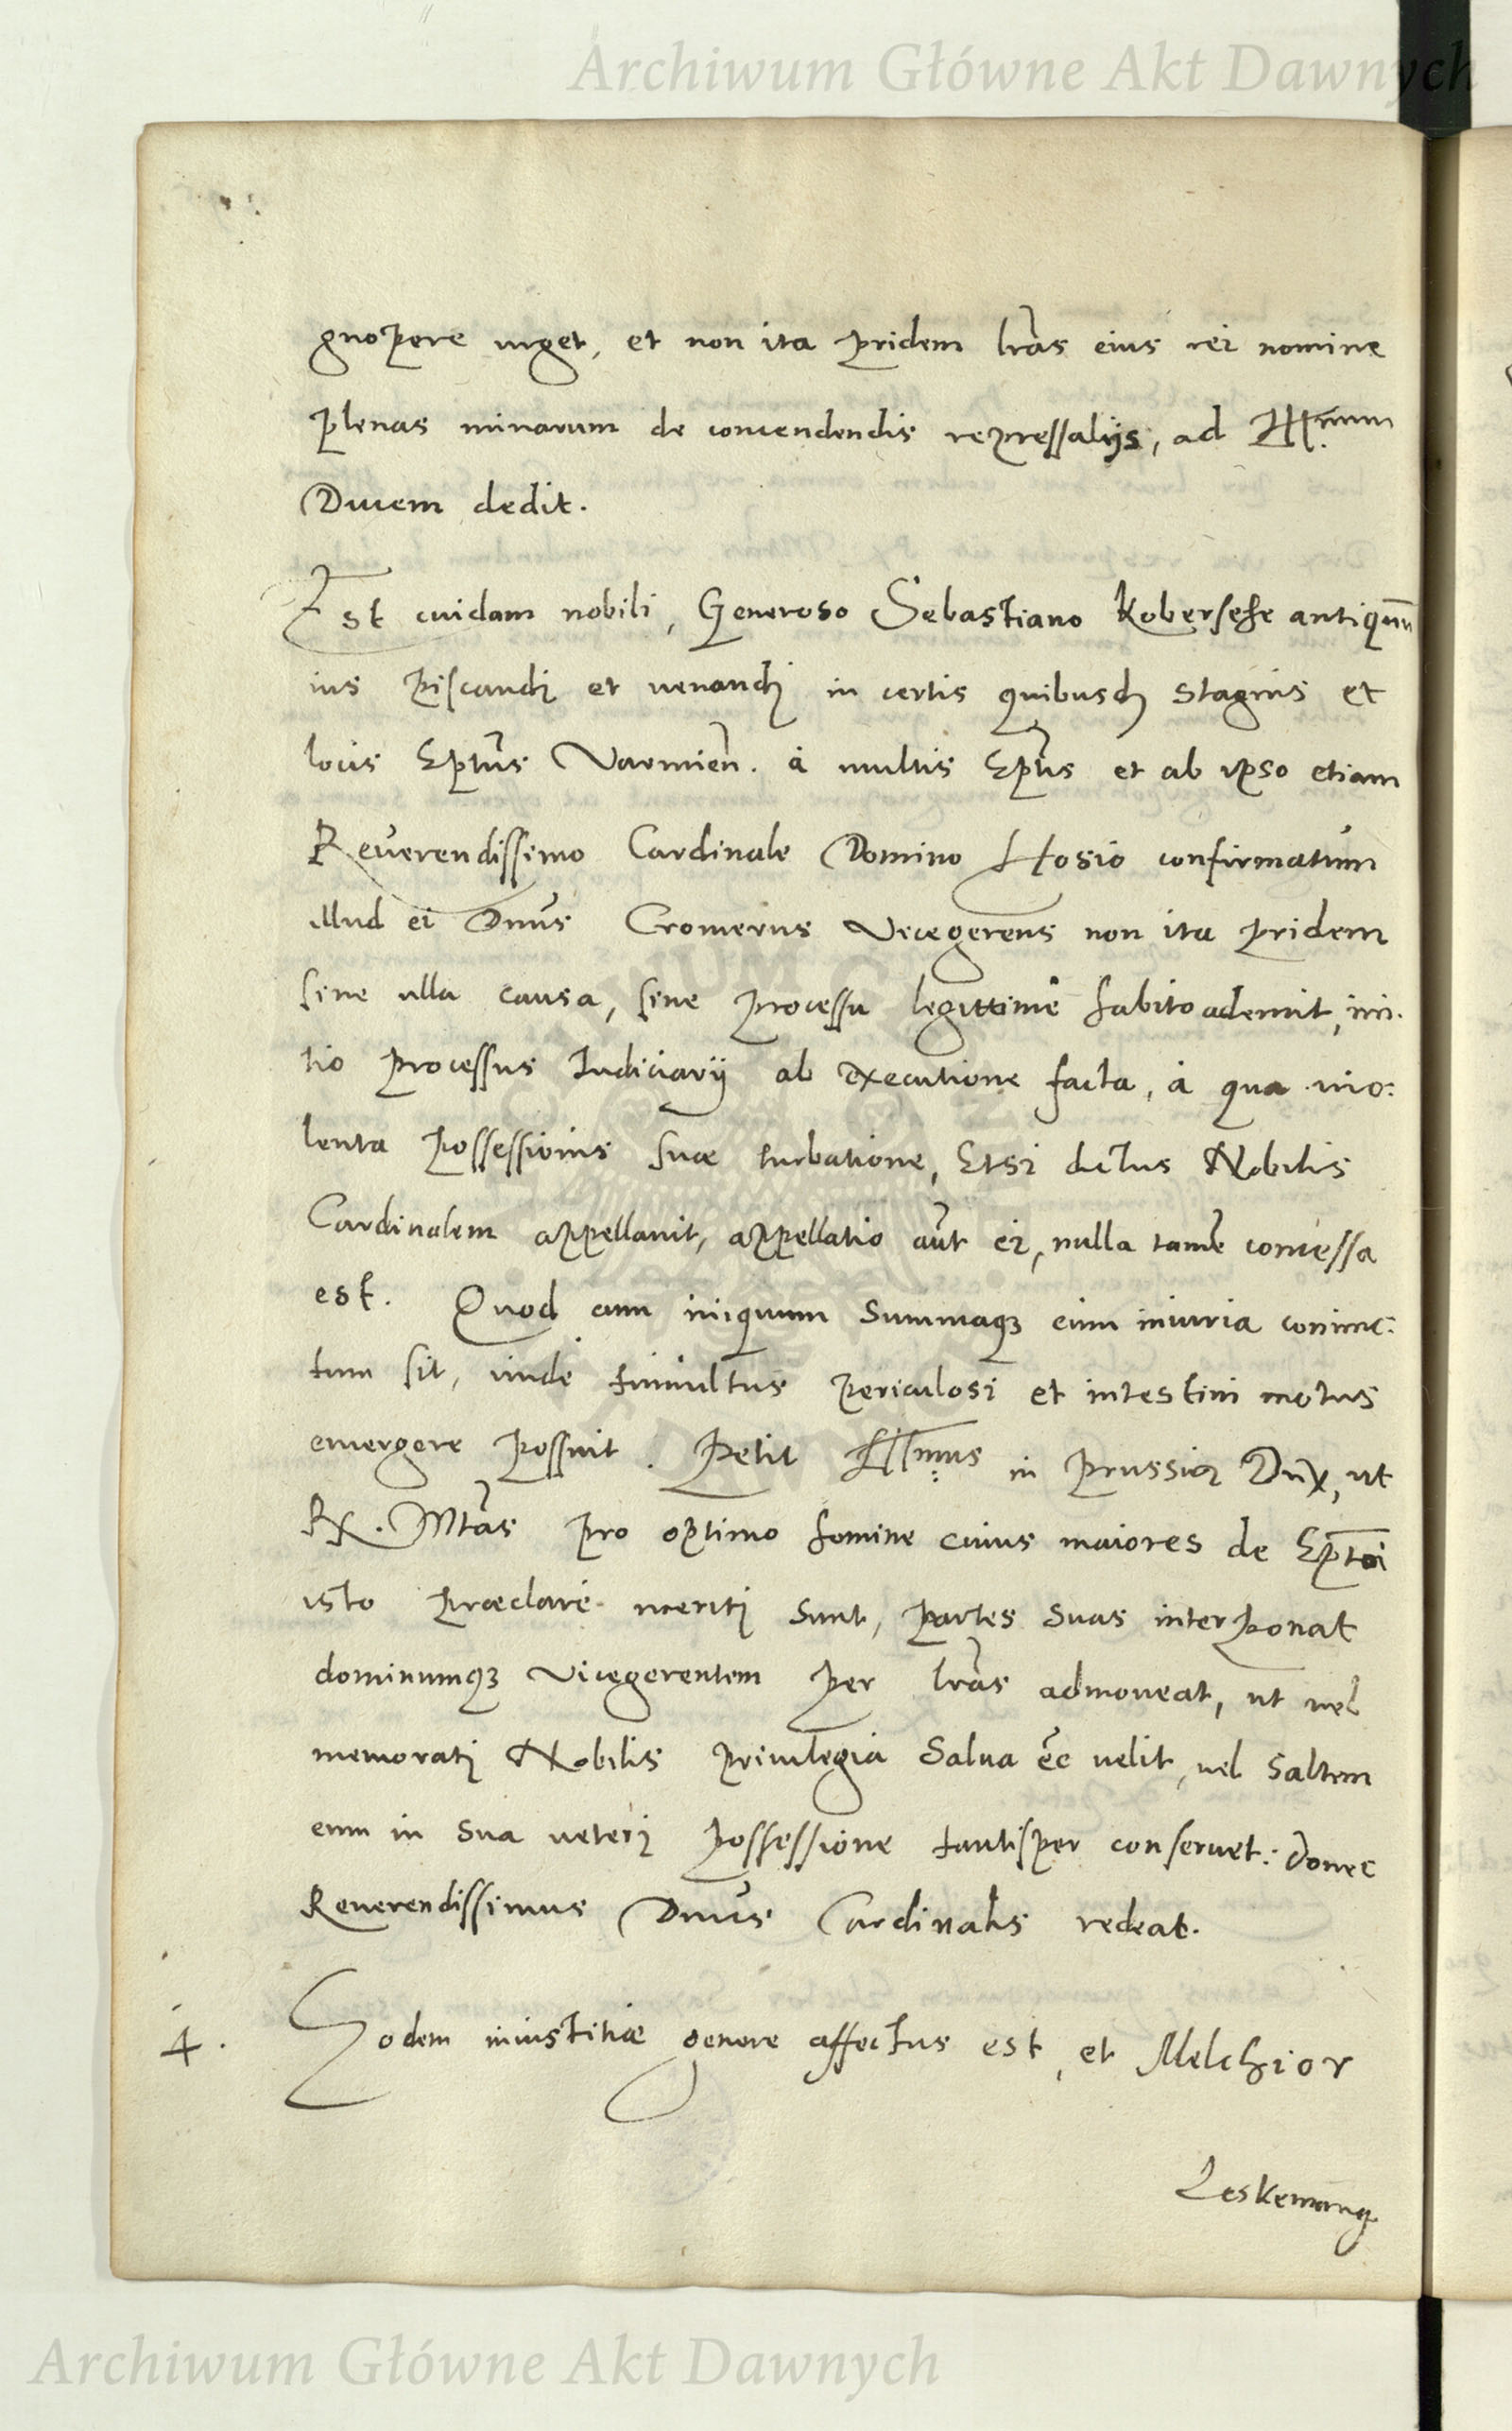 Archiwum Główne Akt Dawnych
gnopere urget, et non ita pridem lras eius rei nomine
plenas minarum de concendendis repressalijs, ad Illmum
Ducem dedit.
Est cuidam nobili, Generoso Sebastiano Kobersehe antiquum
ius piscandi et venandi in certis quibusd stagnis et
locis Eptus Varmien. à multis Epus et ab ipso etiam
Reverendissimo Cardinale Domino Hosio confirmatum
illud ei Dnus Cromerus Vicegerens non ita pridem
sine ulla causa, sine processu legittimè habito ademit, ini.
tio processus Iudiciarij ab executione facta, à qua vio:
lenta possessionis suæ turbatione, Etsi dictus Nobilis
Cardinalem appellavit, appellatio aut ei, nulla tame concessa
est. Quod cum iniquum summaqz cum iniuria coniunc:
tum sit, unde tumultus periculosi et intestini motus
emergere possint. Petit Illmus in Prussia Dux, ut
Rx. Mtas pro optimo homine cuius maiores de Eptoi
isto præclarè meriti sunt, partes suas interponat
dominumqz Vicegerentem per lras admoneat, ut vel
memorati Nobilis privilegia salva eē velit, vel saltem
eum in sua veteri possessione tantisper conservet: donec
Reverendissimus Dnus Cardinalis redeat.
4. Eodem iniustitiæ genere affectus est, et Melchior
Leskemang
Archiwum Główne Akt Dawnych